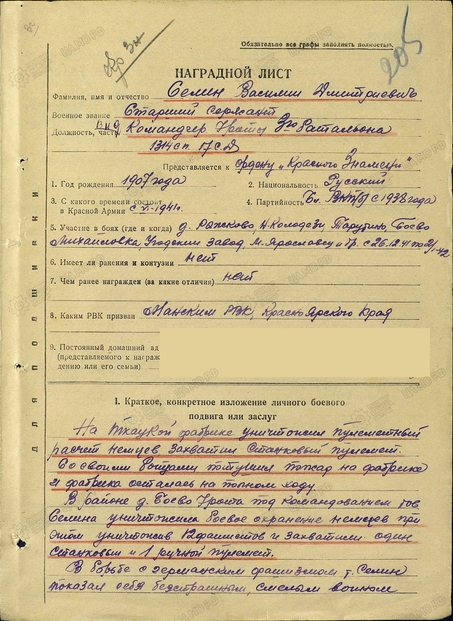 обр Зн
205
Обязательно все графы заполнять полностью.
НАГРАДНОЙ ЛИСТ
Фамилия, имя и отчество Семин Василий Дмитриевич
Военное звание Старший сержант
Должность, часть Командир роты 3го батальона
17 с.д.
Представляется к ордену „Красного Знамени"
1. Год рождения 1907 года 2. Национальность Русский
3. С какого времени состоит в Красной Армии с 1941г. 4. Партийность ВКП(б) с 1938 года
5. Участие в боях (где и когда) д. Тарутино, Боево
Михайловка, Угодский завод, М. Ярославец
6. Имеет ли ранения и контузии нет
7. Чем ранее награжден (за какие отличия) нет
8. Каким РВК призван Манским РВК, Красноярского Края
9. Постоянный домашний ад
(представляемого к награж
дению или его семьи)
для подшивки
I. Краткое, конкретное изложение личного боевого
подвига или заслуг
На фабрике уничтожил пулеметный
расчет немцев захватил станковый пулемет.
Со своими бойцами потушил пожар на фабрике
и фабрика осталась на полном ходу.
В районе д. Боево рота под командованием тов.
Семина уничтожила боевое охранение немцев при
этом уничтожив 12 фашистов и захватили один
станковый и 1 ручной пулемет.
В борьбе с германским фашизмом т. Семин
показал себя бесстрашным, смелым воином